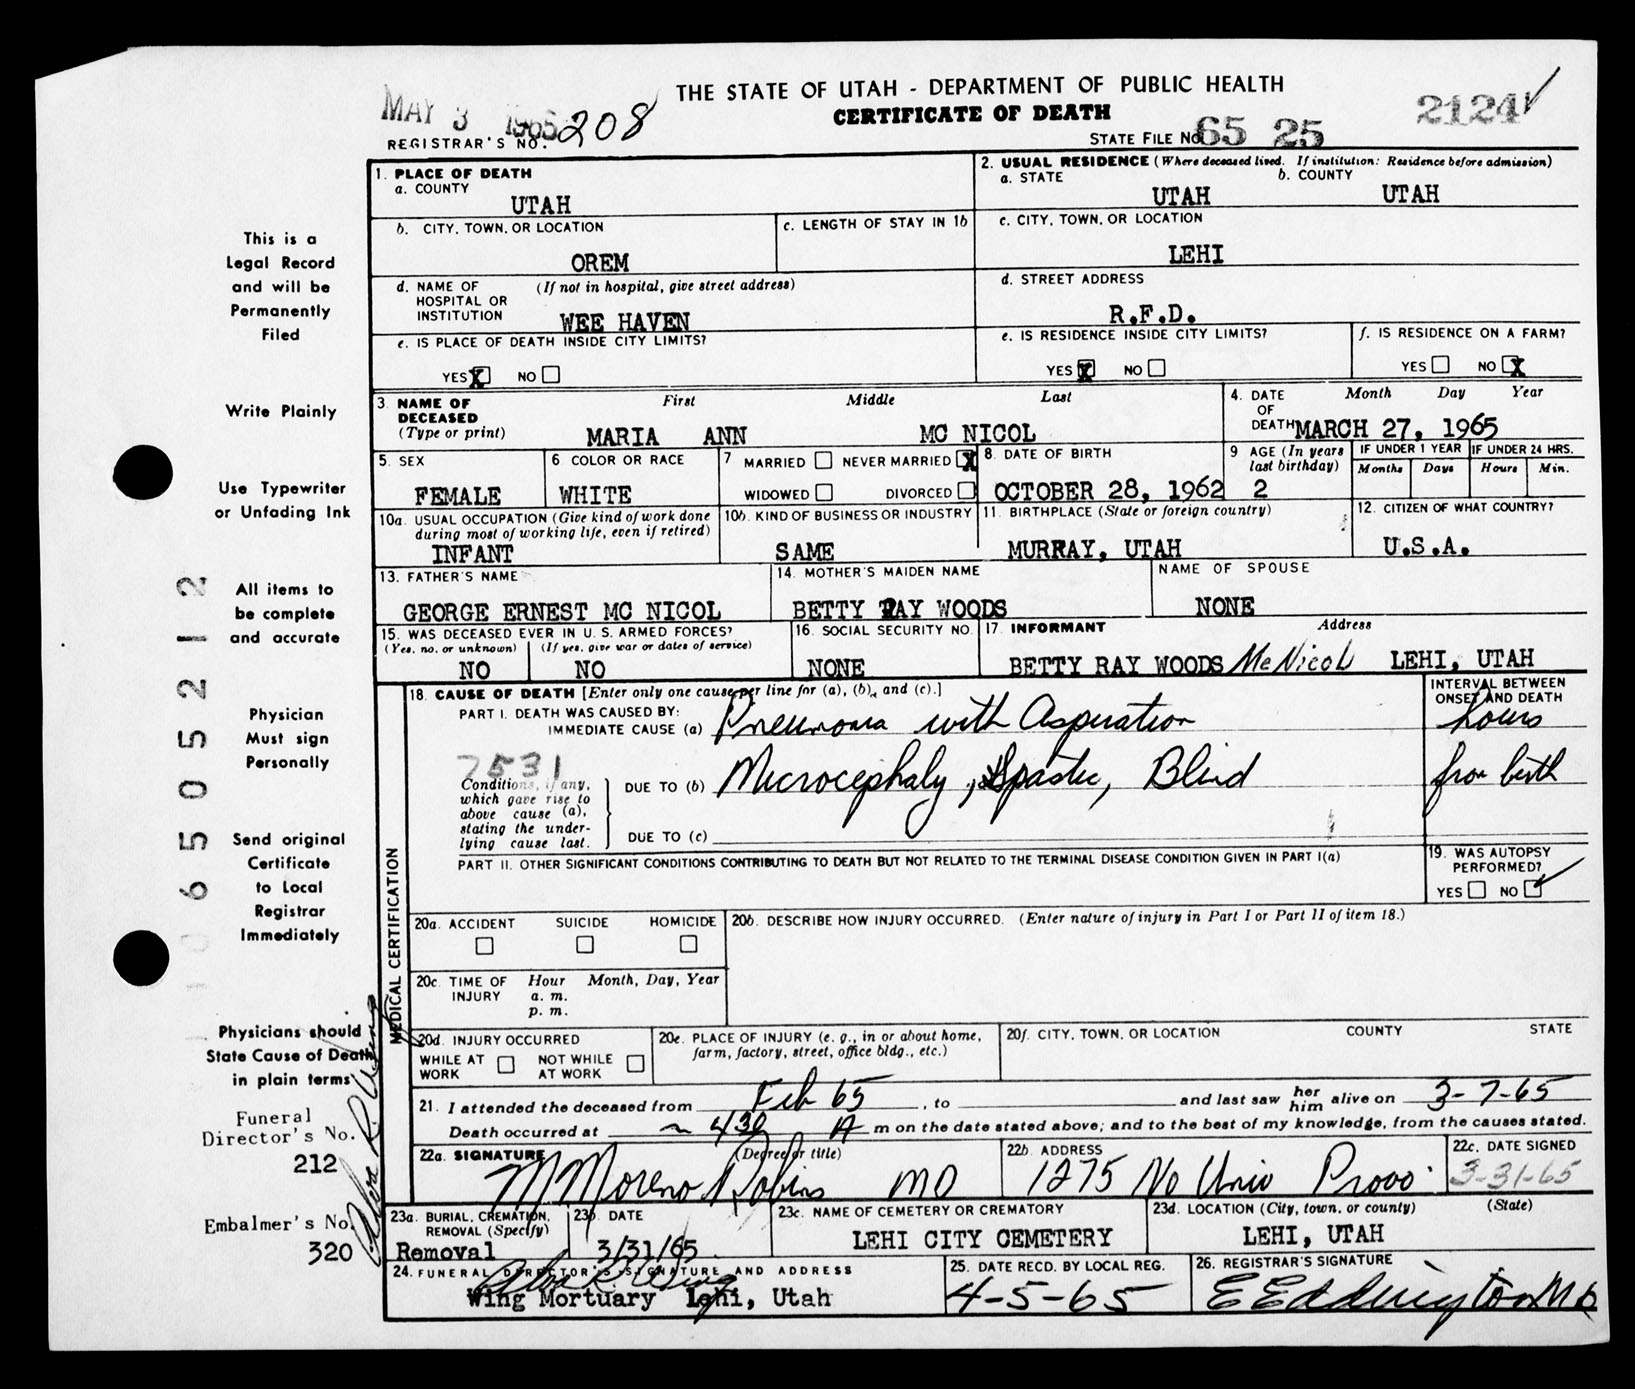 THE STATE OF UTAH - DEPARTMENT OF PUBLIC HEALTH
CERTIFICATE OF DEATH
MAY 3 1965
REGISTRAR'S NO. 208
STATE FILE NO. 65 25
2124
This is a
Legal Record
and will be
Permanently
Filed
Write Plainly
Use Typewriter
or Unfading Ink
All items to
be complete
and accurate
Physician
Must sign
Personally
Send original
Certificate
to Local
Registrar
Immediately
Physicians should
State Cause of Death
in plain terms
Funeral
Director's No.
212
Embalmer's No.
320
Alva R. Wing
10 65 05 52 1 2
1. PLACE OF DEATH
a. COUNTY
UTAH
b. CITY, TOWN, OR LOCATION
OREM
c. LENGTH OF STAY IN 1b
d. NAME OF HOSPITAL OR INSTITUTION (If not in hospital, give street address)
WEE HAVEN
e. IS PLACE OF DEATH INSIDE CITY LIMITS?
YES X NO
2. USUAL RESIDENCE (Where deceased lived. If institution: Residence before admission)
a. STATE b. COUNTY
UTAH UTAH
c. CITY, TOWN, OR LOCATION
LEHI
d. STREET ADDRESS
R.F.D.
e. IS RESIDENCE INSIDE CITY LIMITS?
YES X NO
f. IS RESIDENCE ON A FARM?
YES NO X
3. NAME OF DECEASED (Type or print)
First Middle Last
MARIA ANN MC NICOL
4. DATE OF DEATH Month Day Year
MARCH 27, 1965
5. SEX
FEMALE
6 COLOR OR RACE
WHITE
7 MARRIED NEVER MARRIED X
WIDOWED DIVORCED
8. DATE OF BIRTH
OCTOBER 28, 1962
9 AGE (In years last birthday)
2
IF UNDER 1 YEAR IF UNDER 24 HRS.
Months Days Hours Min.
10a. USUAL OCCUPATION (Give kind of work done during most of working life, even if retired)
INFANT
10b. KIND OF BUSINESS OR INDUSTRY
SAME
11. BIRTHPLACE (State or foreign country)
MURRAY, UTAH
12. CITIZEN OF WHAT COUNTRY?
U.S.A.
13. FATHER'S NAME
GEORGE ERNEST MC NICOL
14. MOTHER'S MAIDEN NAME
BETTY RAY WOODS
NAME OF SPOUSE
NONE
15. WAS DECEASED EVER IN U.S. ARMED FORCES?
(Yes, no, or unknown) (If yes, give war or dates of service)
NO NO
16. SOCIAL SECURITY NO.
NONE
17. INFORMANT Address
BETTY RAY WOODS McNicol LEHI, UTAH
MEDICAL CERTIFICATION
18. CAUSE OF DEATH [Enter only one cause per line for (a), (b), and (c).]
INTERVAL BETWEEN ONSET AND DEATH
PART I. DEATH WAS CAUSED BY:
IMMEDIATE CAUSE (a) Pneumonia with Aspiration hours
7531
Conditions, if any, which gave rise to above cause (a), stating the underlying cause last.
DUE TO (b) Microcephaly, Spastic, Blind from birth
DUE TO (c)
PART II. OTHER SIGNIFICANT CONDITIONS CONTRIBUTING TO DEATH BUT NOT RELATED TO THE TERMINAL DISEASE CONDITION GIVEN IN PART I(a)
19. WAS AUTOPSY PERFORMED?
YES NO ✓
20a. ACCIDENT SUICIDE HOMICIDE
20b. DESCRIBE HOW INJURY OCCURRED. (Enter nature of injury in Part I or Part II of item 18.)
20c. TIME OF INJURY Hour Month, Day, Year
a. m.
p. m.
20d. INJURY OCCURRED
WHILE AT WORK NOT WHILE AT WORK
20e. PLACE OF INJURY (e. g., in or about home, farm, factory, street, office bldg., etc.)
20f. CITY, TOWN, OR LOCATION COUNTY STATE
21. I attended the deceased from Feb 65, to and last saw her him alive on 3-7-65
Death occurred at ~ 430 A m on the date stated above; and to the best of my knowledge, from the causes stated.
22a. SIGNATURE (Degree or title)
M Moreno Robins MD
22b. ADDRESS
1275 No Univ Provo
22c. DATE SIGNED
3-31-65
23a. BURIAL, CREMATION, REMOVAL (Specify)
Removal
23b. DATE
3/31/65
23c. NAME OF CEMETERY OR CREMATORY
LEHI CITY CEMETERY
23d. LOCATION (City, town, or county) (State)
LEHI, UTAH
24. FUNERAL DIRECTOR'S SIGNATURE AND ADDRESS
Alva R. Wing
Wing Mortuary Lehi, Utah
25. DATE RECD. BY LOCAL REG.
4-5-65
26. REGISTRAR'S SIGNATURE
E Eddington MD